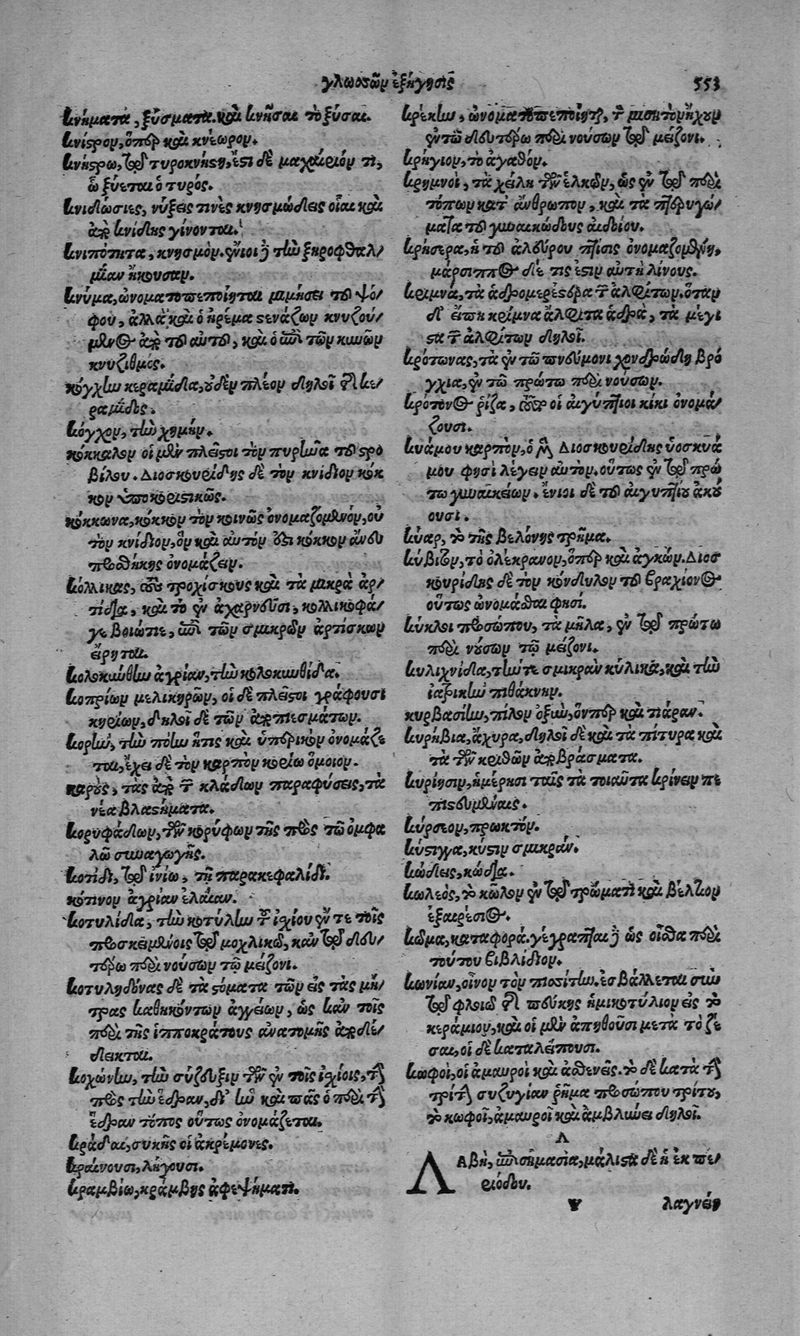 γλωσσῶν ἐξήγησις 553
κνήματα, ξύσματα. καὶ κνῆσαι τὸ ξύσαι.
κνίστρον, ὅπερ καὶ κνέωρον.
κνήστρῳ, τῷ τυροκνήστῃ, ἔστι δὲ μαχαίριόν τι,
ᾧ ξύεται ὁ τυρός.
κνιδώσιες, νύξεις τινὲς κνησμώδεις οἷαι καὶ
ἀπὸ κνίδης γίνονται.
κνιπότητα, κνησμόν. ἔνιοι δὲ τὴν ξηροφθαλ/
μίαν ἤκουσαν.
κνύμα, ὠνοματοπεποίηται μιμήσει τοῦ ψό/
φου, ἀλλὰ καὶ ὁ ἠρέμα στενάζων κνυζού/
μενος ἀπὸ τοῦ αὐτοῦ, καὶ ὁ ἐπὶ τῶν κυνῶν
κνυζιθμός.
κόγχην κεραμίδα, οὐδὲν πλέον δηλοῖ τῆς κε/
ραμίδος.
κόγχον, τὴν χημήν.
κόκκαλον οἱ μὲν πλεῖστοι τὸν πυρῆνα τοῦ στρο
βίλου. Διοσκουρίδης δὲ τὸν κνίδιον κόκ
κον ὑποκοριστικῶς.
κόκκωνα, κόκκον τὸν κοινῶς ὀνομαζόμενον, οὐ
τὸν κνίδιον, ὃν καὶ αὐτὸν ἔστι κόκκον ἄνευ
προσθήκης ὀνομάζειν.
κόλλικας, τοὺς τροχίσκους καὶ τὰ μικρὰ ἀρ/
τίδια, καὶ τὸ ἐν ἀχαρνεῦσι, κολλικοφά/
γε βοιώτιε, ἐπὶ τῶν σμικρῶν ἀρτίσκων
εἴρηται.
κολοκύνθην ἀγρίαν, τὴν κολοκυνθίδα.
κοπρίων μελικηρῶν, οἱ δὲ πλεῖστοι γράφουσι
κηρίων, δηλοῖ δὲ τῶν ἀποπιεσμάτων.
κορὴν, τὴν πόην ἥτις καὶ ὑπέρικον ὀνομάζε
ται, ἔχει δὲ τὸν καρπὸν κορίῳ ὅμοιον.
κόρος, τὰς ἀπὸ τῶν κλάδων παραφύσεις, τὰ
νέα βλαστήματα.
κορυφάδων, τῶν κορύφων τῆς πρὸς τῷ ὀμφα
λῷ συναγωγῆς.
κοτίδι, τῷ ἰνίῳ, τῇ παρακεφαλίδι.
κότινον ἀγρίαν ἐλαίαν.
κοτυλίδα, τὴν κοτύλην τοῦ ἰσχίου ἔν τε τοῖς
προσκειμένοις τῷ μοχλικῷ, κἂν τῷ δευ/
τέρῳ περὶ νούσων τῷ μείζονι.
κοτυληδόνας δὲ τὰ στόματα τῶν εἰς τὰς μή/
τρας καθηκόντων ἀγγείων, ὡς κἂν τοῖς
περὶ τῆς ἱπποκράτους ἀνατομῆς ἀποδέ/
δεικται.
κοχώνην, τὴν σύζευξιν τῶν ἐν τοῖς ἰσχίοις, τὴν
πρὸς τὴν ἕδραν, δι’ ἣν καὶ πᾶς ὁ περὶ τὴν
ἕδραν τόπος οὕτως ὀνομάζεται.
κράδαι, συκῆς οἱ ἀκρέμονες.
κραίνουσι, λήγουσι.
κραμβίῳ, κράμβης ἀφεψήματι.
κρέκειν, ὠνοματοπεποίηται, τὸν μιμητὸν ἦχον
ἐν τῷ δευτέρῳ περὶ νούσων τῷ μείζονι.
κρήγιον, τὸ ἀγαθόν.
κρημνοὶ, τὰ χείλη τῶν ἑλκῶν, ὡς ἐν τῷ περὶ
τόπων κατ’ ἄνθρωπον, καὶ τὰ πτερυγώ/
ματα τοῦ γυναικώδους αἰδοίου.
κρησέρα, ἡ τοῦ ἀλεύρου πτίσις ὀνομαζομένη,
μάρσιππος δέ τις ἐστὶν αὕτη λίνους.
κρίμνα, τὰ ἁδρομερέστερα τῶν ἀλφίτων. ὅταν
δ’ εἴπῃ κρίμνα ἄλφιτα ἁδρὰ, τὰ μέγι
στα τῶν ἀλφίτων δηλοῖ.
κρότωνας, τὰ ἐν τῷ πνεύμονι χονδρώδη βρό
γχια, ἐν τῷ πρώτῳ περὶ νούσων.
κρότωνος ῥίζα, ὅπερ οἱ αἰγύπτιοι κίκι ὀνομά/
ζουσι.
κυάμου καρπὸν, ὁ μὲν Διοσκουρίδης ὑοσκυά
μου φησὶ λέγειν αὐτόν. οὕτως ἐν τῷ πρώ
τῳ γυναικείων. ἔνιοι δὲ τοῦ αἰγυπτίου ἀκού
ουσι.
κύαρ, τὸ τῆς βελόνης τρῆμα.
κύβιτον, τὸ ὀλέκρανον, ὅπερ καὶ ἀγκών. Διοσ
κουρίδης δὲ τὸν κόνδυλον τοῦ βραχίονος
οὕτως ὠνομάσθαι φησί.
κύκλοι προσώπου, τὰ μῆλα, ἐν τῷ πρώτῳ
περὶ νούσων τῷ μείζονι.
κυλιχνίδα, τήν τε σμικρὰν κύλικα, καὶ τὴν
ἰατρικὴν πιθάκνην.
κυρβασίην, πῖλον ὀξὺν, ὅνπερ καὶ τιάραν.
κυρήβια, ἄχυρα, δηλοῖ δὲ καὶ τὰ πίτυρα καὶ
τὰ τῶν κριθῶν ἀποβράσματα.
κυρίησιν, ἡμέρῃσι ταῖς τὰ τοιαῦτα κρίνειν πε
πιστευμέναις.
κύρσεον, πρωκτόν.
κύστιγγα, κύστιν σμικράν.
κώδιες, κώδια.
κωλεός, τὸ κῶλον ἐν τῷ τρώματι καὶ βέλεων
ἐξαιρέσιος.
κῶμα, καταφορά. γέγραπται δὲ ὡς οἶσθα περὶ
τούτου βιβλίδιον.
κωνίαν, οἶνον τὸν πισσίτην. ἐσβάλλεται σὺν
τῷ φλοιῷ τῆς πεύκης ἡμικοτύλιον εἰς τὸ
κεράμιον, καὶ οἱ μὲν ἀπηθοῦσι μετὰ τὸ ζέ
σαι, οἱ δὲ καταλείπουσι.
κωφοὶ, οἱ ἀμαυροὶ καὶ ἀσθενεῖς. τὸ δὲ κατὰ τὴν
τρίτην συζυγίαν ῥῆμα προσώπου τρίτου,
τὸ κωφοῖ, ἀμαυροῖ καὶ ἀμβλύνει δηλοῖ.
Λ
ΛΑβὴ, ἐπισημασία, μάλιστα δὲ ἡ ἐκ πε/
ριόδου.
Ψ λαγνέη